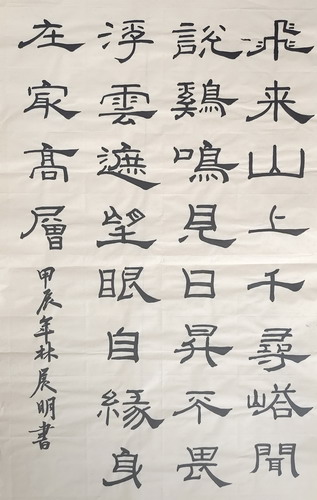 飛来山上千尋塔聞
說鷄鳴見日昇不畏
浮雲遮望眼自緣身
在冣髙層
甲辰年林展明書